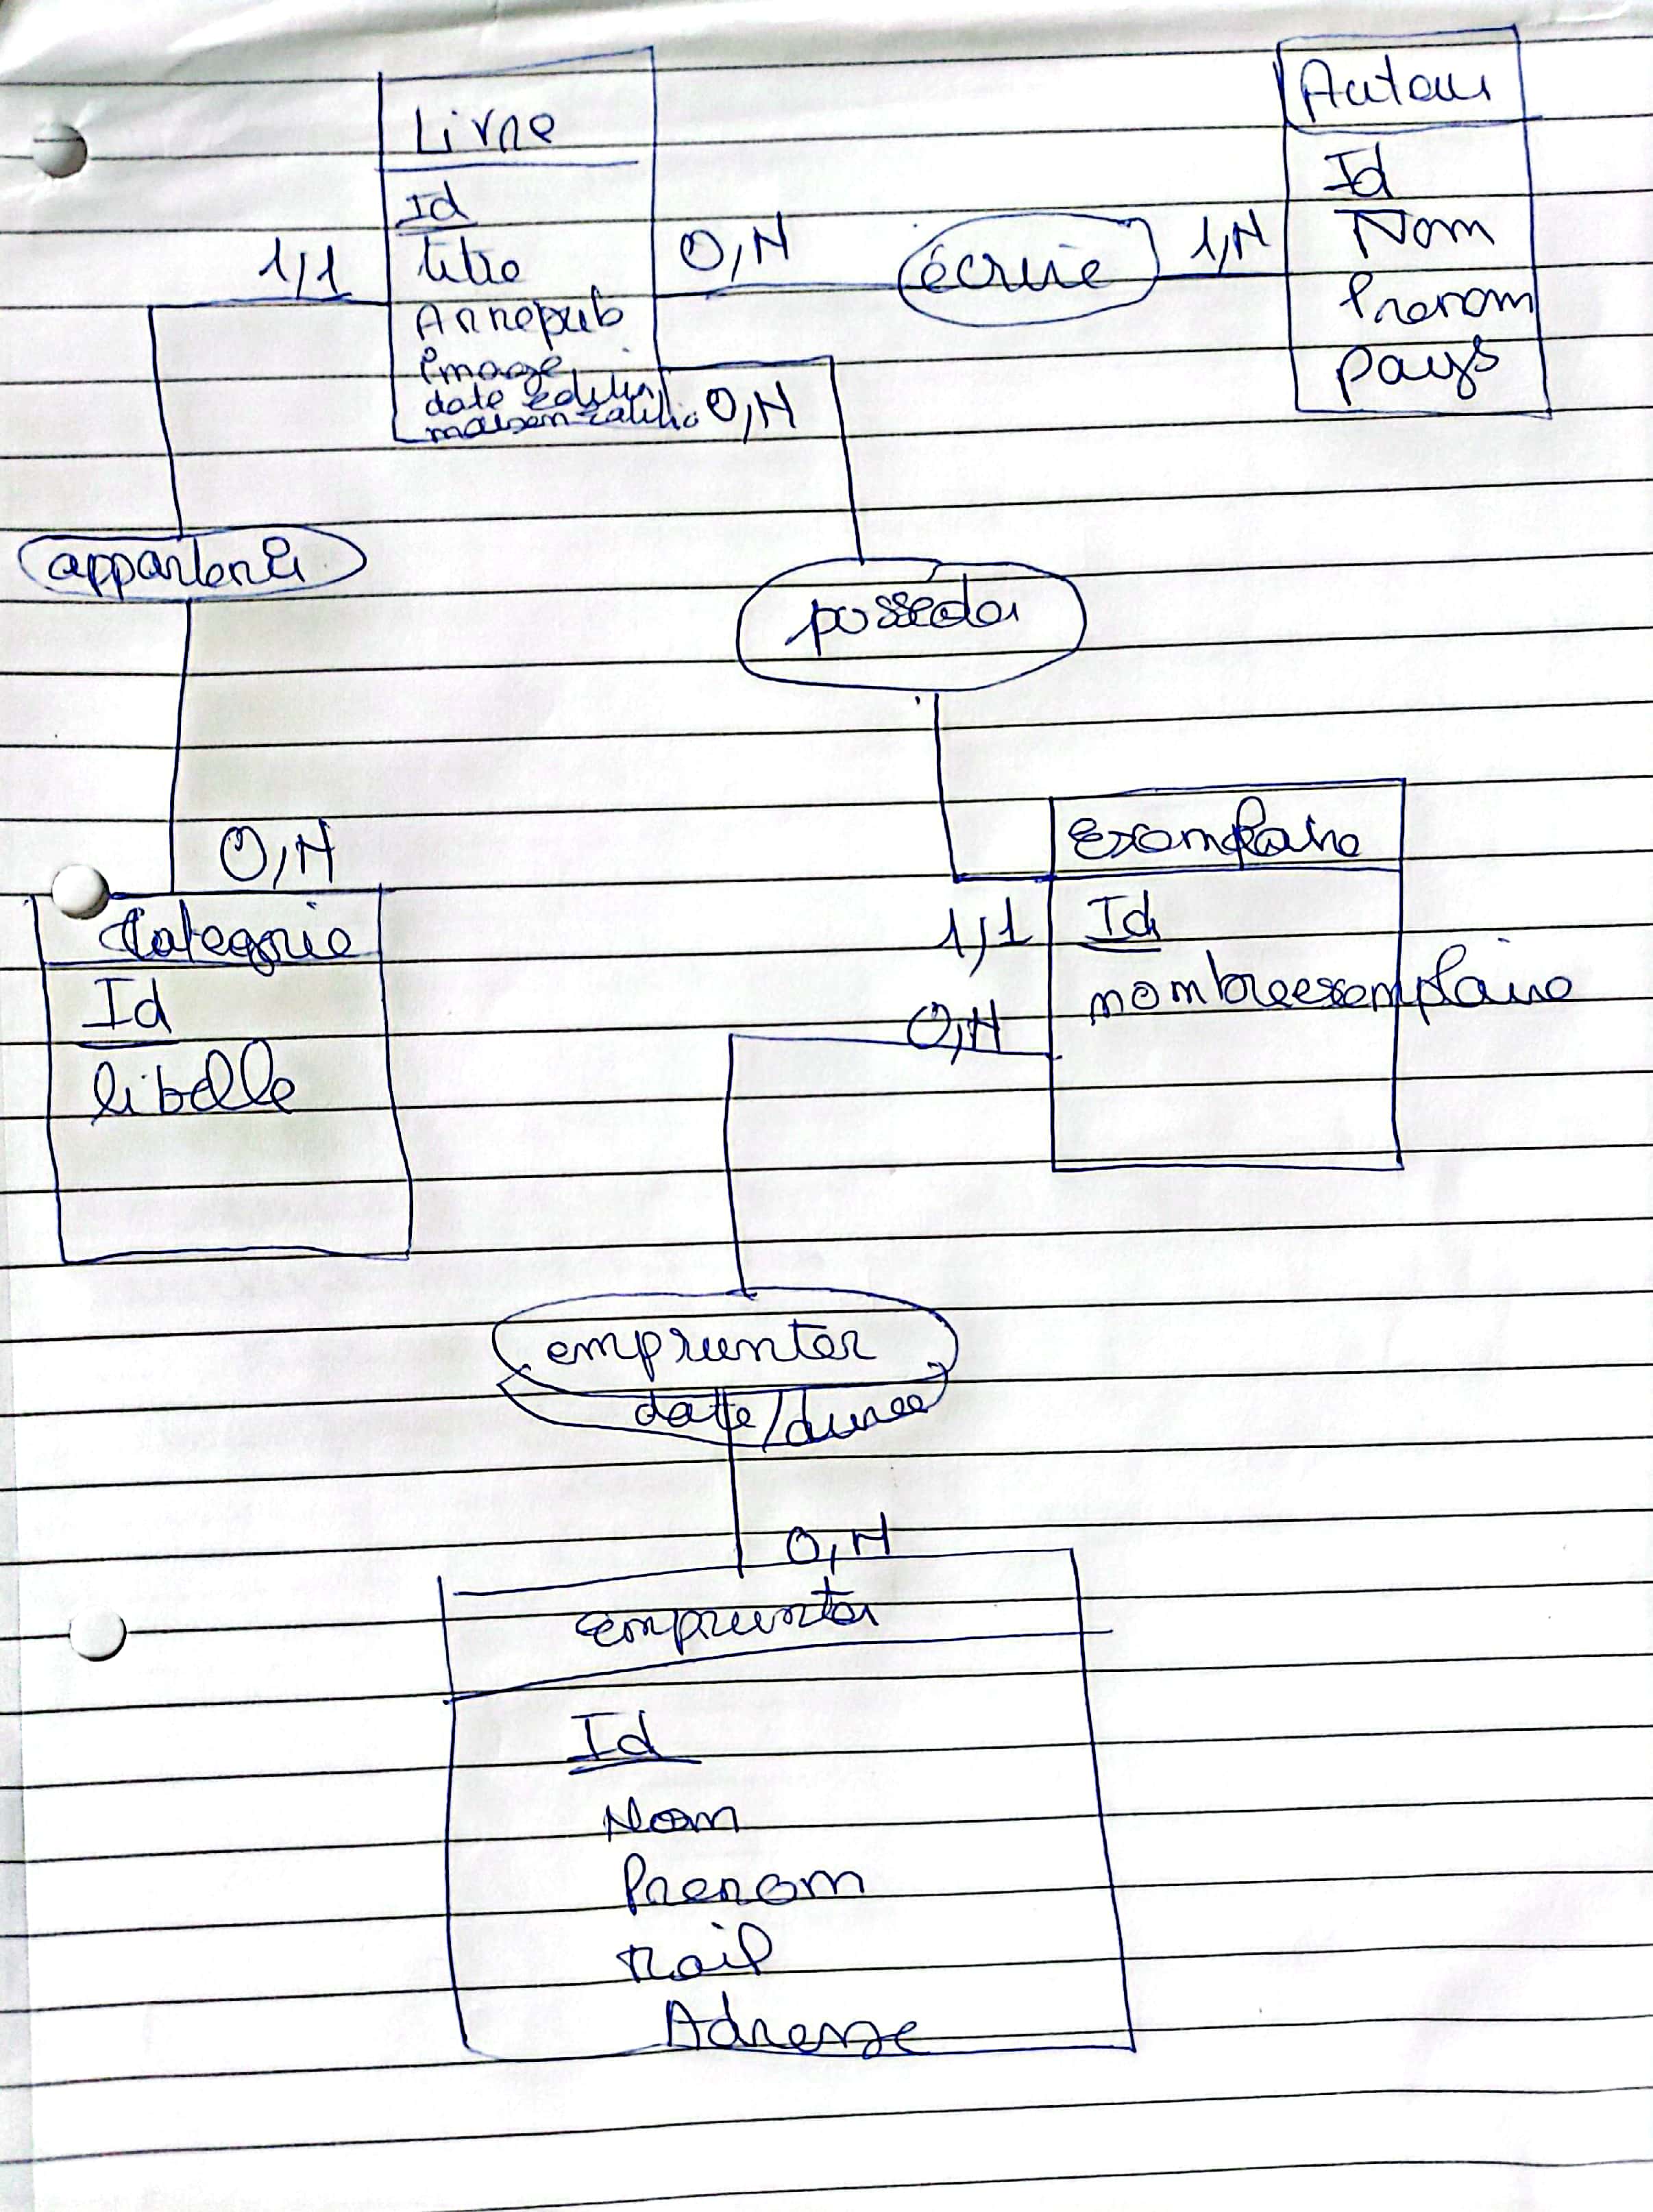 Livre
Id
titre
Annepub
Image
date edition
maison editio
1,1
0,N
écrire
1,N
Auteur
Id
Nom
Prenom
pays
0,N
appartenir
posseder
0,N
Categorie
Id
libelle
Exemplaire
1,1
Id
nombreexemplaire
0,N
emprunter
date/duree
0,N
Id
Nom
Prenom
Mail
Adresse